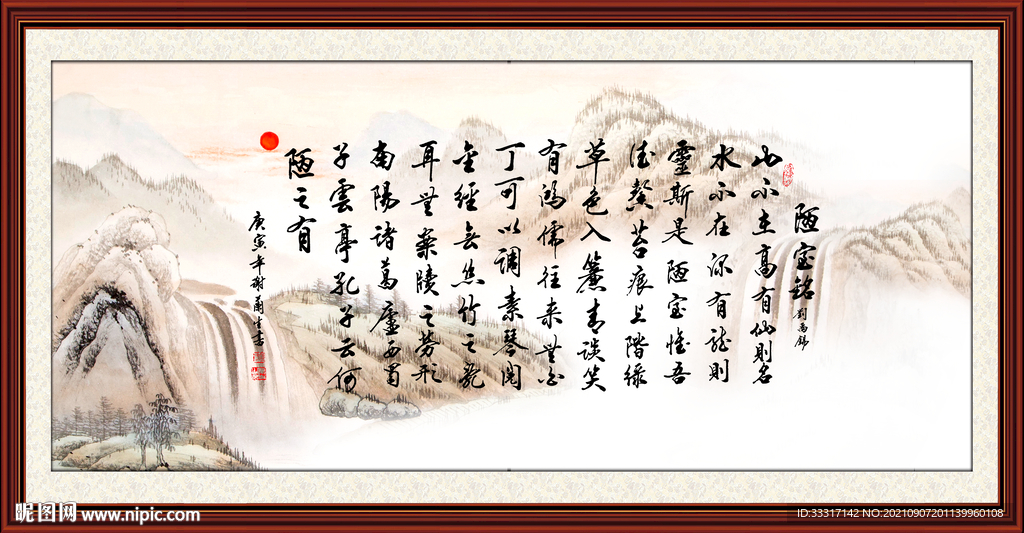 陋室銘 劉禹錫
山不在高有仙則名
水不在深有龍則
靈斯是陋室惟吾
德馨苔痕上階緑
草色入簾青談笑
有鴻儒往来無白
丁可以調素琴閲
金經無絲竹之亂
耳無案牘之勞形
南陽諸葛廬西蜀
子雲亭孔子云何
陋之有
庚寅年謝蘭書
昵图网 www.nipic.com
ID:33317142 NO:20210907201139960108